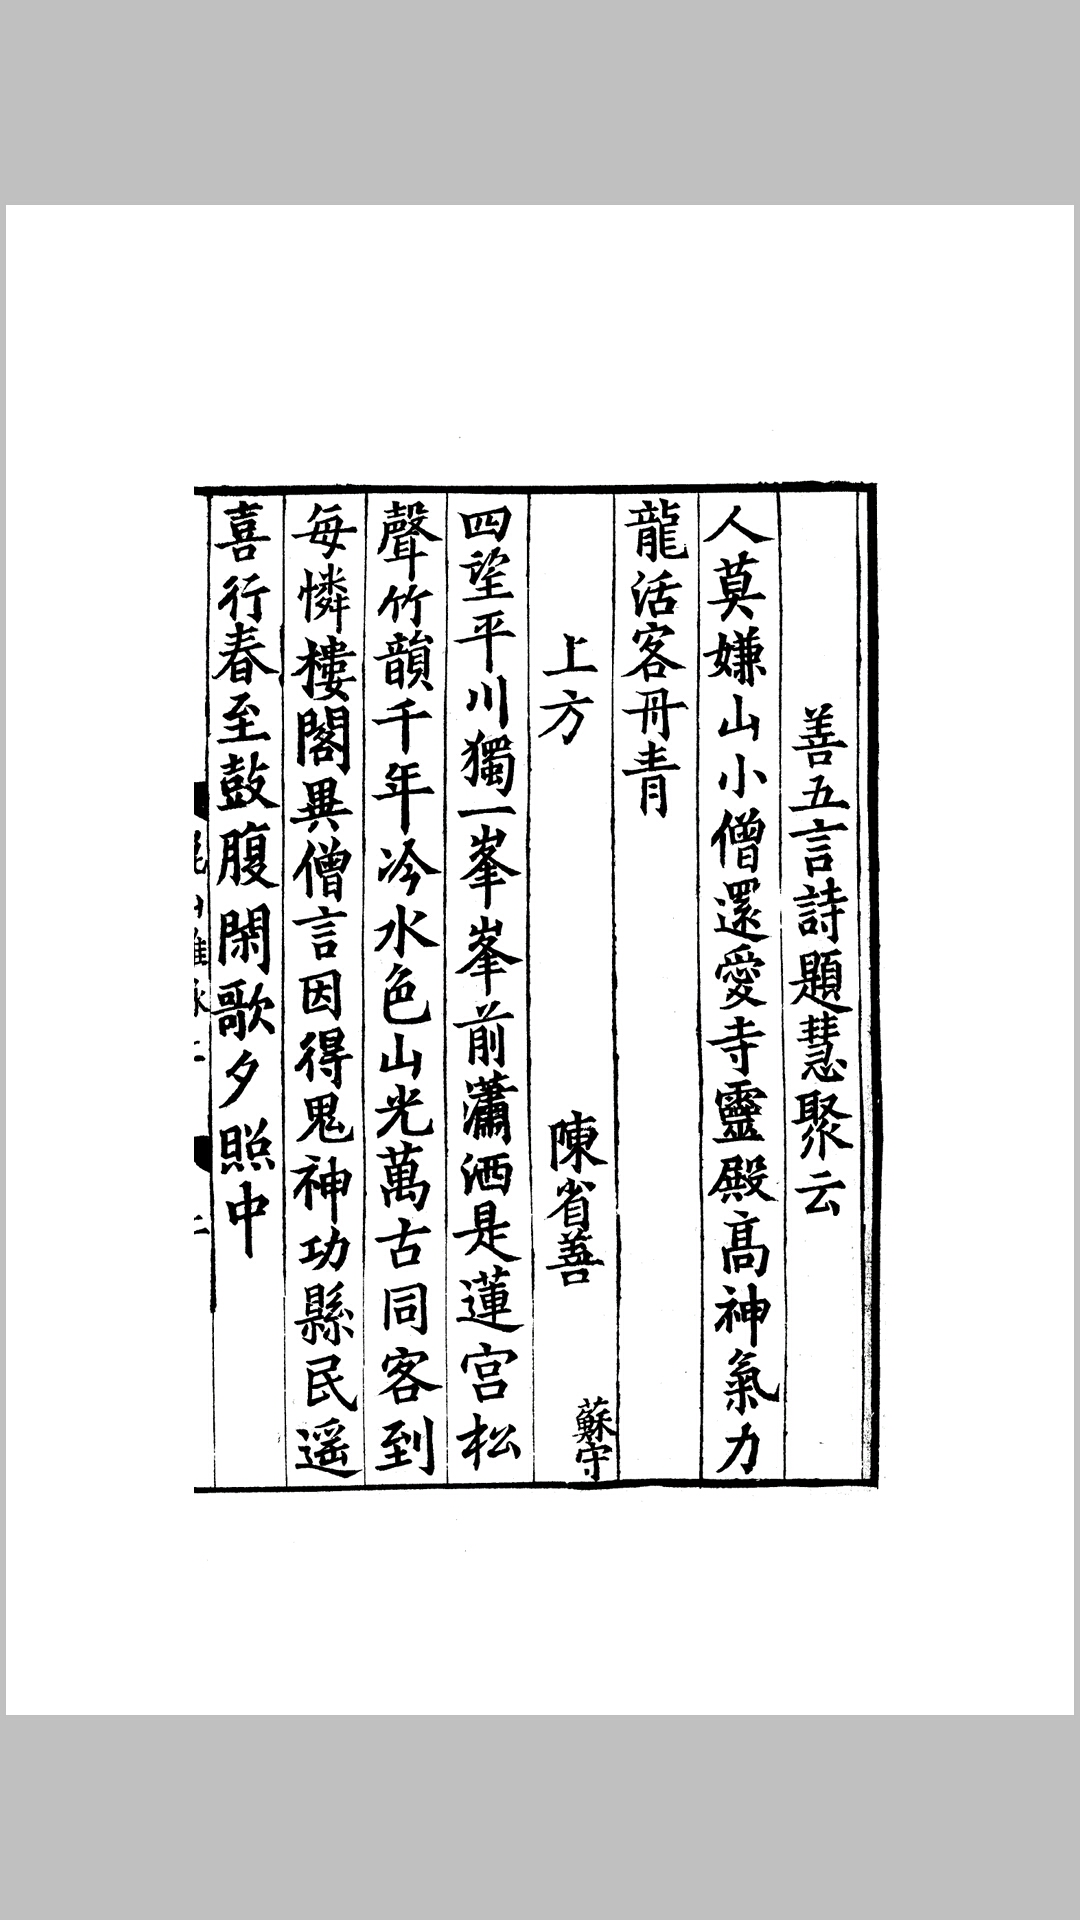 善五言詩題慧聚云
人莫嫌山小僧還愛寺靈殿高神氣力
龍活客丹青
上方　陳省善　蘇守
四望平川獨一峯峯前瀟洒是蓮宫松
聲竹韻千年冷水色山光萬古同客到
每憐樓閣異僧言因得鬼神功縣民遥
喜行春至鼓腹閑歌夕照中